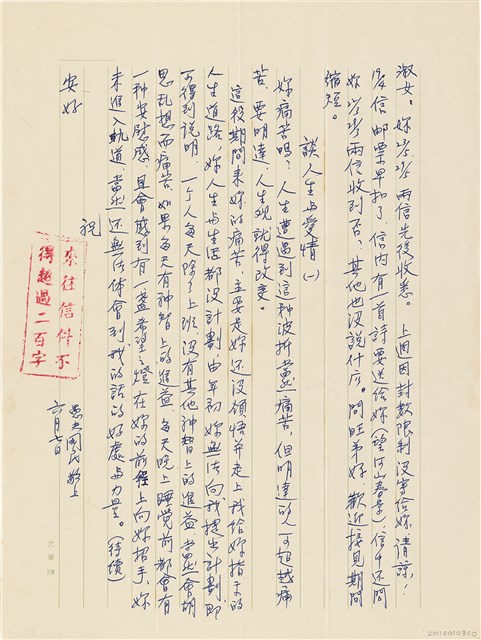 淑女：妳 兩信先後收悉。上週因封數限制沒寫給妳，請諒！
信郵票早扣了，信內有一首詩要送給妳(望 山春景)，信中還問
妳 兩信收到否，其他也沒說什広。問旺弟好，歡迎接見期間
縮短。
談人生与愛情(一)
妳痛苦嗎？人生遭遇到這种波折當然痛苦，但明達的人可超越痛
苦，要明達，人生观就得改变。
這段期間来妳的痛苦，主要是妳還沒領悟并走上我給妳指示的
人生道路，妳人生与生活都沒計劃，由年初妳無法向我提出計劃即
可得到說明。一个人每天除了上班，沒有其他神智上的進益，當然會胡
思乱想而痛苦，如果每天有神智上的進益，每天晚上睡覺前都會有
一种安慰感，且會感到有一盞希望之燈在妳的前程上向妳招手，妳
未進入軌道，當然還無法体會到我的話的好處与力量。(待續)
祝
安好
愚夫國民敬上
六月七日
來往信件不
得超過二百字
20110010310